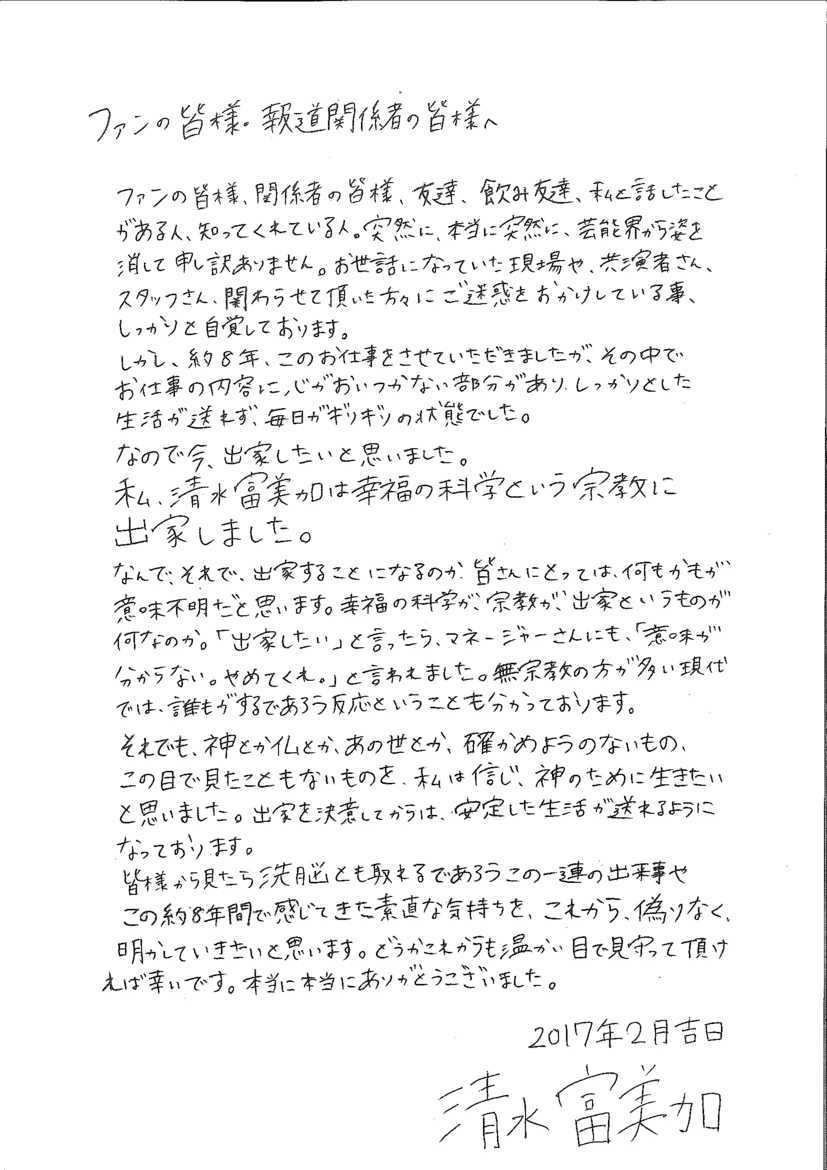 ファンの皆様。報道関係者の皆様へ
ファンの皆様、関係者の皆様、友達、飲み友達、私と話したこと
がある人、知ってくれている人。突然に、本当に突然に、芸能界から姿を
消して申し訳ありません。お世話になっていた現場や、共演者さん、
スタッフさん、関わらせて頂いた方々にご迷惑をおかけしている事、
しっかりと自覚しております。
しかし、約8年、このお仕事をさせていただきましたが、その中で
お仕事の内容に心がおいつかない部分があり、しっかりとした
生活が送れず、毎日がギリギリの状態でした。
なので今、出家したいと思いました。
私、清水富美加は幸福の科学という宗教に
出家しました。
なんで、それで、出家することになるのか、皆さんにとっては、何もかもが
意味不明だと思います。幸福の科学が、宗教が、出家というものが
何なのか。「出家したい」と言ったら、マネージャーさんにも、「意味が
分からない。やめてくれ。」と言われました。無宗教の方が多い現代
では、誰もがするであろう反応ということも分かっております。
それでも、神とか仏とか、あの世とか、確かめようのないもの、
この目で見たこともないものを、私は信じ、神のために生きたい
と思いました。出家を決意してからは、安定した生活が送れるように
なっております。
皆様から見たら洗脳とも取れるであろうこの一連の出来事や
この約8年間で感じてきた素直な気持ちを、これから、偽りなく、
明かしていきたいと思います。どうかこれからも温かい目で見守って頂け
れば幸いです。本当に本当にありがとうございました。
2017年2月吉日
清水富美加